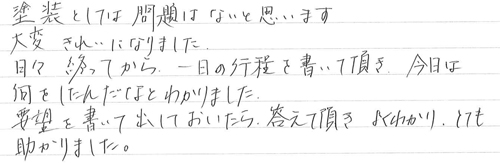 塗装としては 問題はないと思います
大変 きれいになりました.
日々 終ってから. 一日の行程を書いて頂き. 今日は
何をしたんだなとわかりました.
要望を書いて出しておいたら. 答えて頂き よくわかり. とても
助かりました。